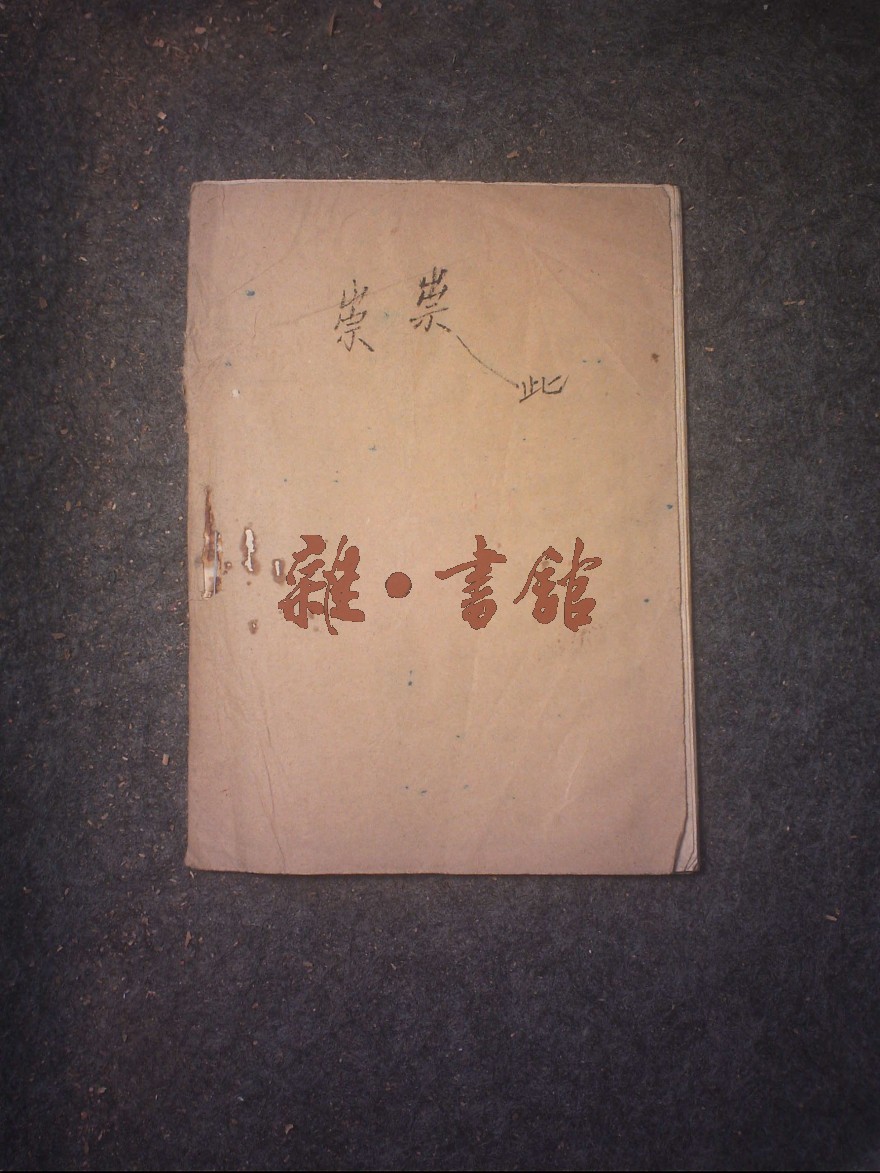 崇 崇
此
雜·書館